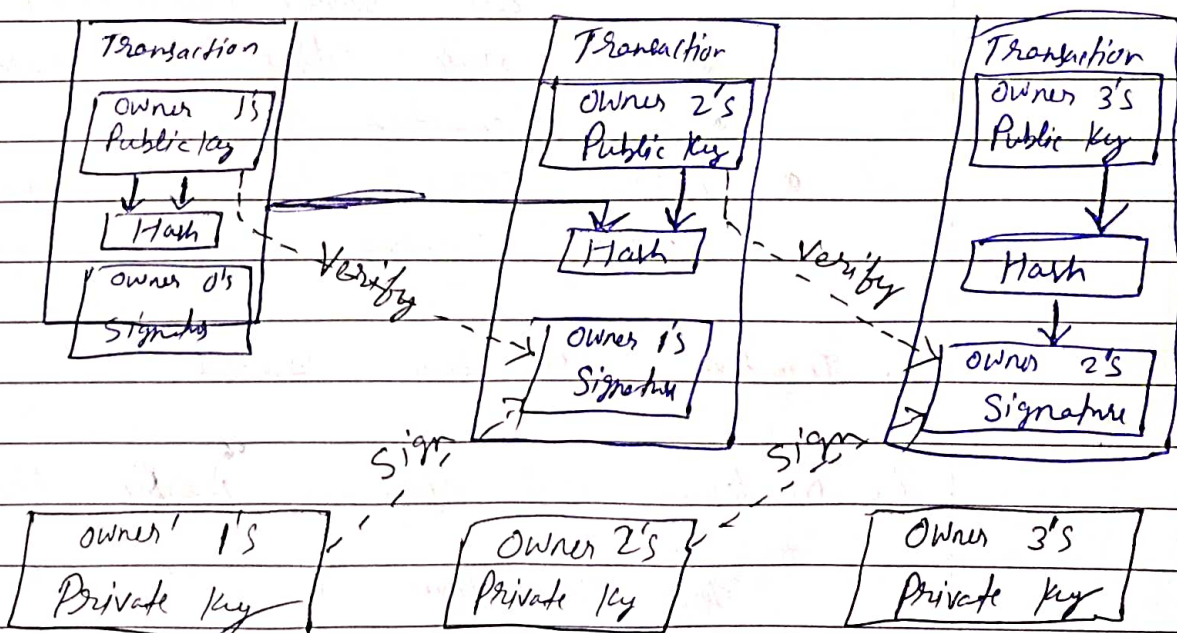 Transaction
Owner 1's
Public Key
Hash
Owner 0's
Signature
Verify
Transaction
Owner 2's
Public Key
Hash
Owner 1's
Signature
Sign
Verify
Transaction
Owner 3's
Public Key
Hash
Owner 2's
Signature
Sign
Owner 1's
Private Key
Owner 2's
Private Key
Owner 3's
Private Key